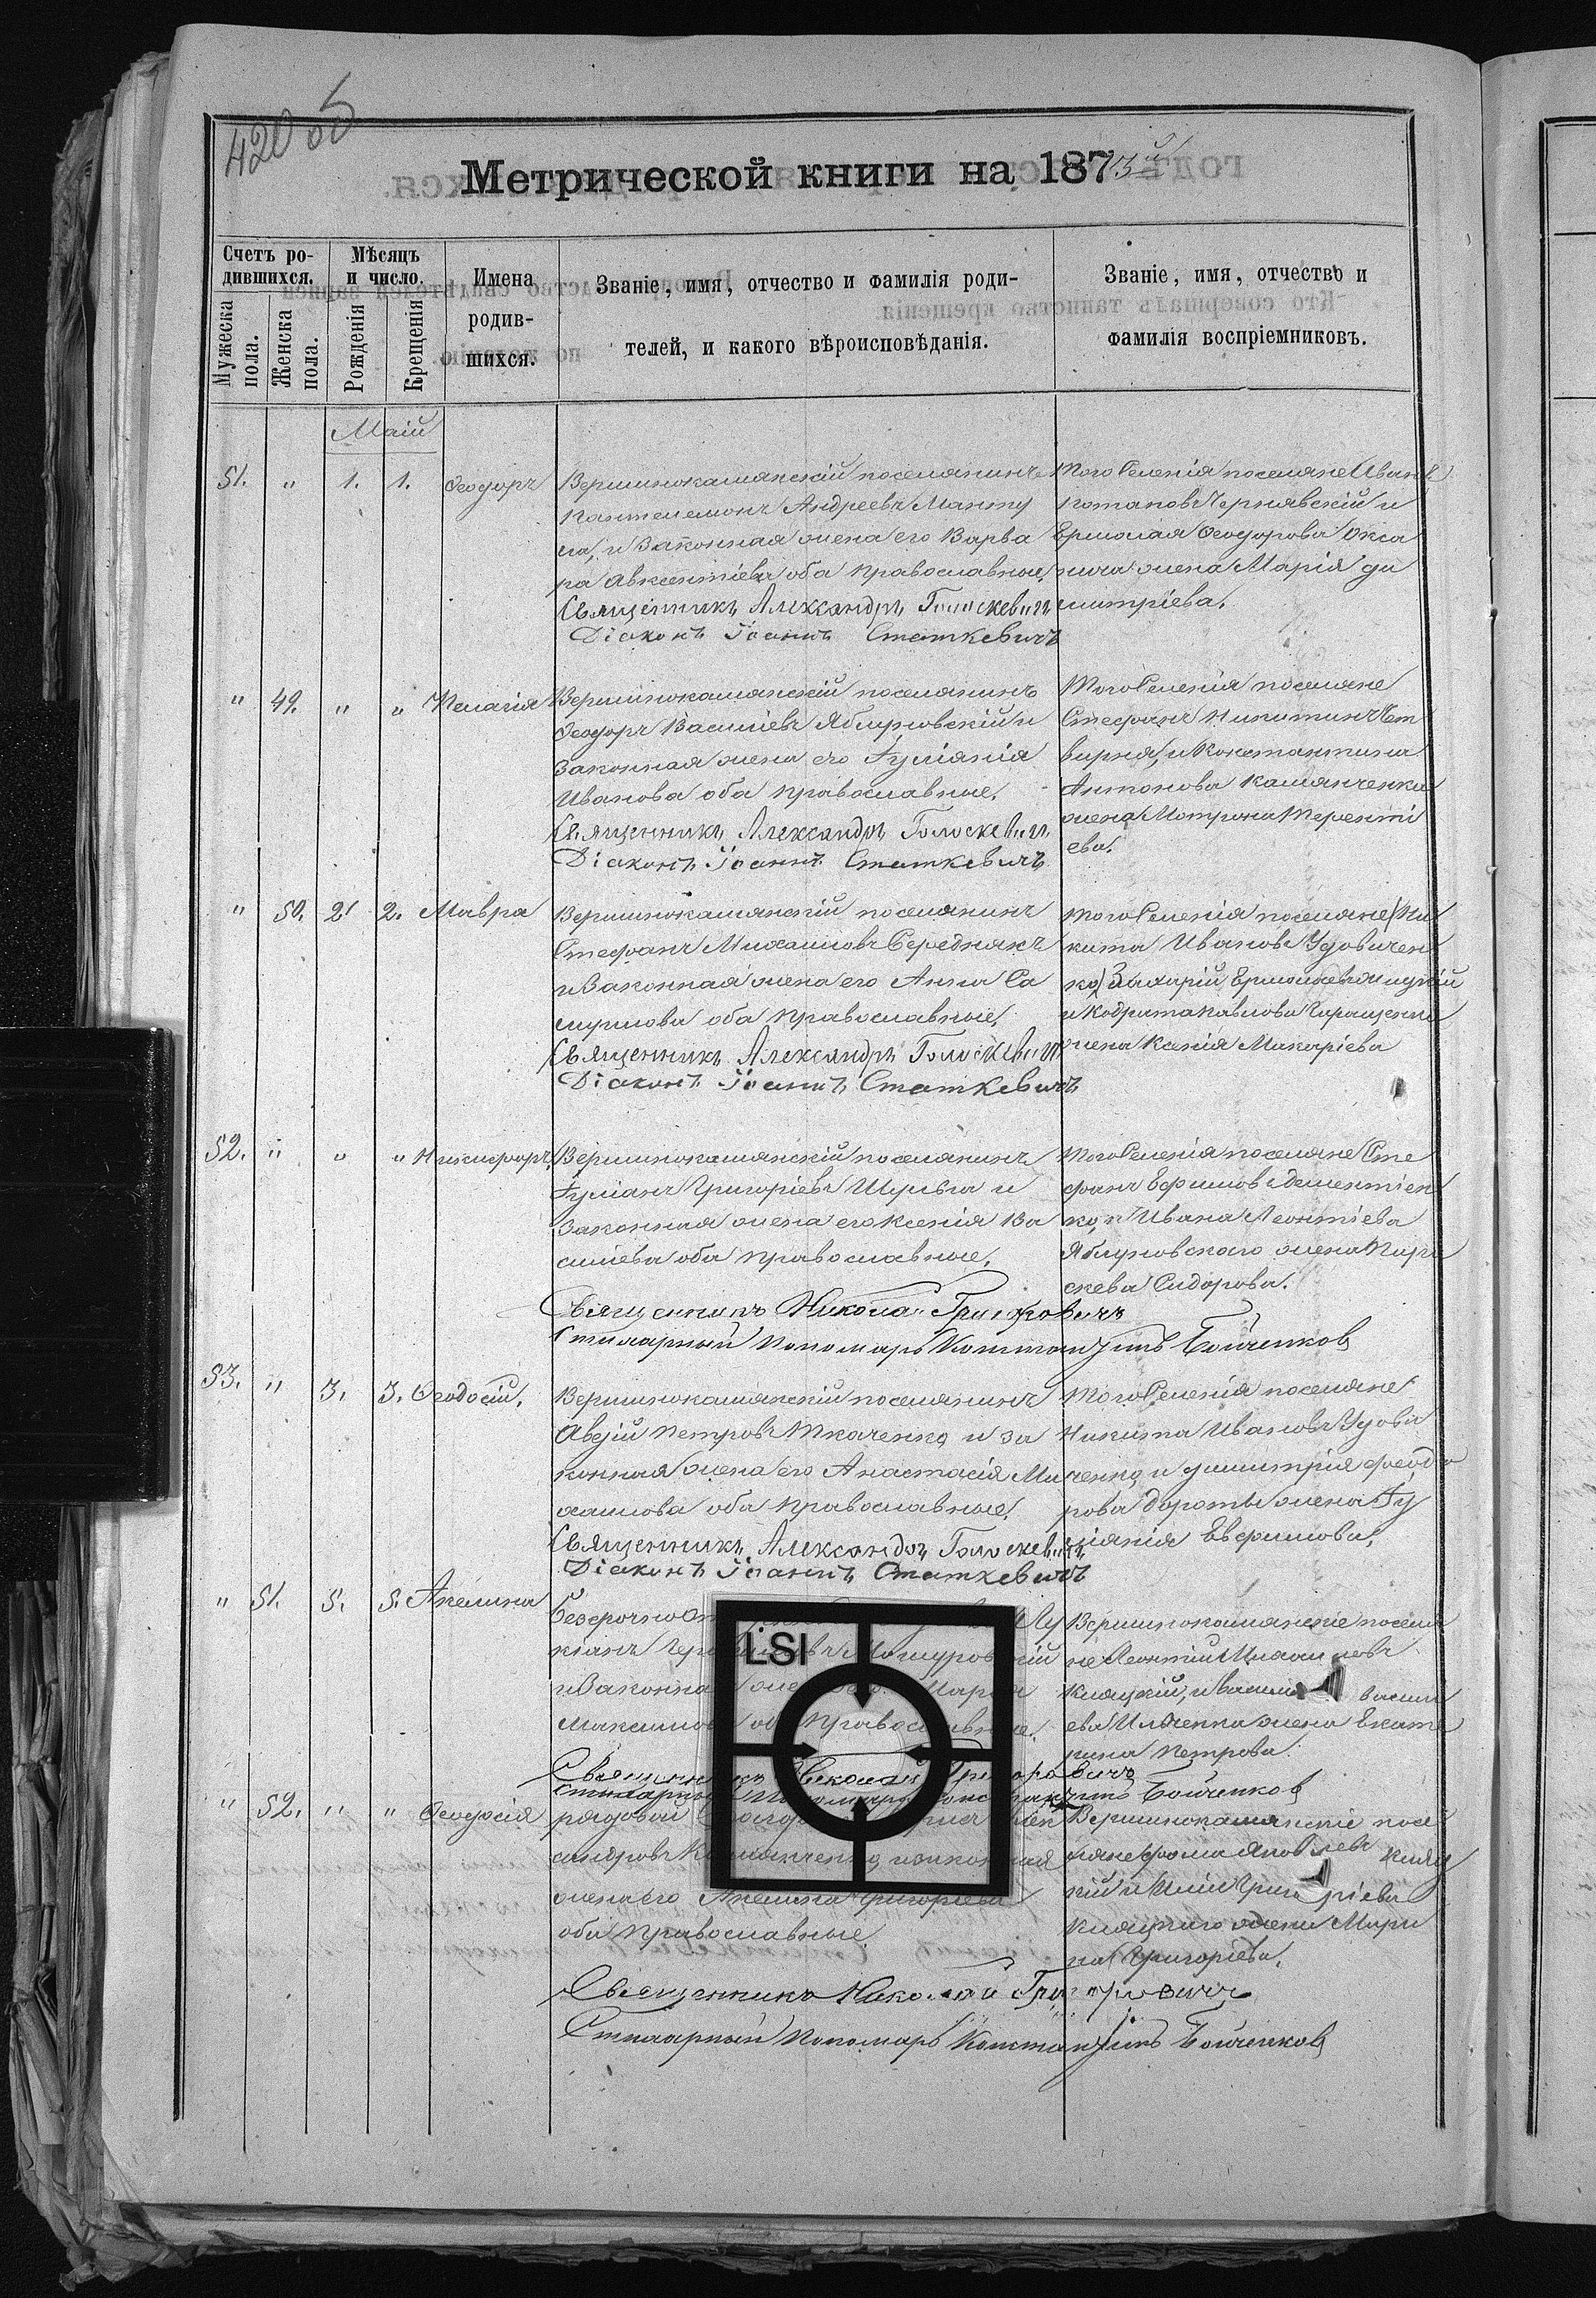 420 об
Метрической книги на 1873й
Счетъ ро-
дившихся.
Мужеска
пола.
Женска
пола.
Мѣсяцъ
и число.
Рожденія
Крещенія
Имена
родив-
шихся.
Званіе, имя, отчество и фамилія роди-
телей, и какого вѣроисповѣданія.
Званіе, имя, отчество и
фамилія воспріемниковъ.
Маій
51. " 1. 1. Ѳеодоръ
Вершинокамянскій поселянинъ
Пантелемонъ Андреевъ
и Законная жена его Варва
ра Авксентіева оба православные,
Священникъ Александръ Голоскевичъ
Діаконъ Іоаннъ Статкевичъ
Того Селенія поселяне Иванъ
Потаповъ Чернявскій и
Ермолая Ѳеодорова
жена Марія Ди
митріева.
" 49. " " Пелагія
Вершинокамянскій поселянинъ
Ѳеодоръ Василіевъ Яблуновскій и
Законная жена его Іуліанія
Иванова оба православные.
Священникъ Александръ Голоскевичъ
Діаконъ Іоаннъ Статкевичъ
Того Селенія поселяне
Стефанъ Никитинъ Чет
вирня, и Константина
Антонова Камянченка
жена Матрона Теренті
ева.
" 50. 2. 2. Мавра
Вершинокамянскій поселянинъ
Стефанъ Михаиловъ Середнякъ
и Законная жена его Анна Са
муилова оба православные,
Священникъ Александръ Голоскевичъ
Діаконъ Іоаннъ Статкевичъ
Того Селенія поселяне Ни
кита Ивановъ Удовичен
ко, Захарій
и Кодрата Павлова Геращенка
жена Ксенія Макаріева
52. " " " Никифоръ
Вершинокамянскій поселянинъ
Іуліанъ Григоріевъ Шульга и
Законная жена его Ксенія Ва
силіева оба православные,
Священникъ Николай Григоровичъ
Стихарный Пономарь Константинъ Бойченковъ
Того Селенія поселяне Сте
фанъ Ефимовъ Дементіен
ко, и Ивана Леонтіева
Яблуновскаго жена Пара
скева Сидорова.
53. " 3. 3. Ѳеодосій.
Вершинокамянскій поселянинъ
Авдій Петровъ Ткаченко, и за
конная жена его Анастасія Ми
хаилова оба православные,
Священникъ Александръ Голоскевичъ
Діаконъ Іоаннъ Статкевичъ
Того Селенія поселяне
Никита Ивановъ Удови
ченко, и Димитрія Ѳеодо
рова жена Іу
ліанія Евфимова,
" 51. 5. 5. Акелина
LSI
Лу
кіанъ Мошуровскій
и Законная жена его Марія
Максимова оба православные.
Священникъ Николай Григоровичъ
Стихарный Пономарь Константинъ Бойченковъ
Вершинокамянскіе поселя
не Леонтій Михаиловъ
Кляцкій, и Василія Василі
ева Ильченка жена Екате
рина Петрова.
" 52. " " Ѳеодосія
рядовой
сандровъ Камянченко, и законная
жена его Акелина Григоріева
оба православные.
Священникъ Николай Григоровичъ
Стихарный Пономарь Константинъ Бойченковъ
Вершинокамянскіе посе
ляне Фома Яковлевъ Кляц
кій и Иліи Григоріева
Кляцкаго жена Мари
на Григоріева.